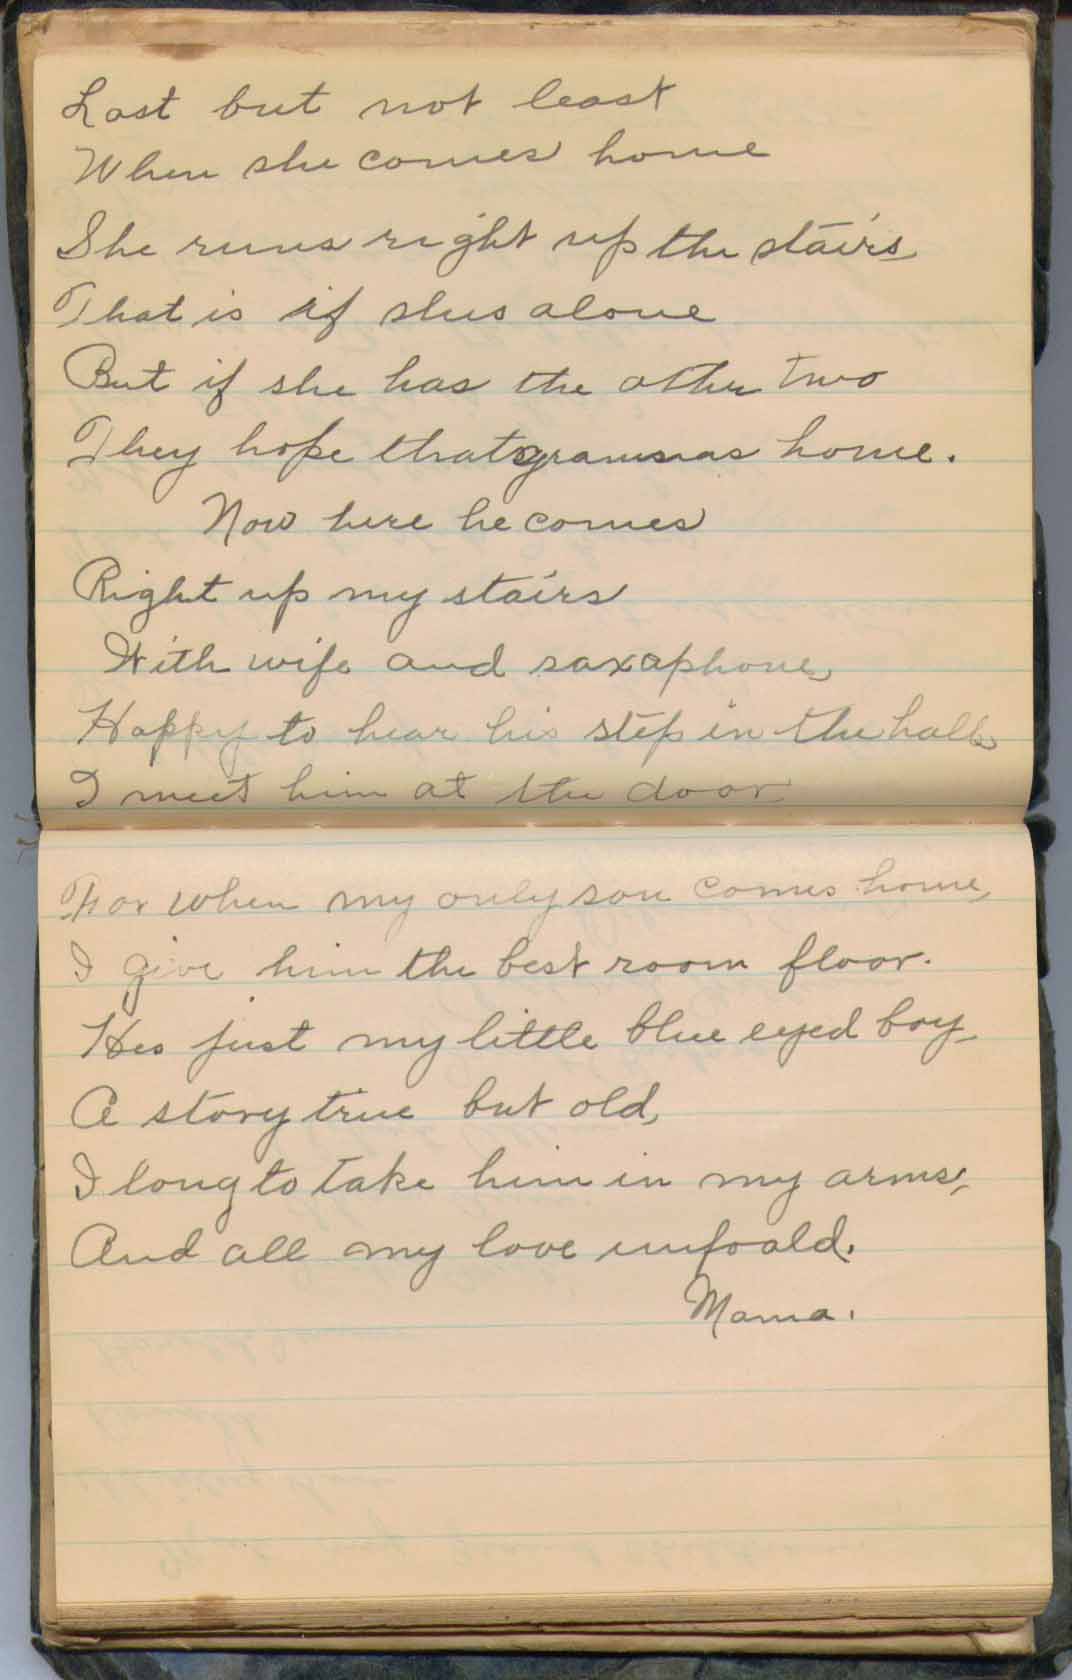 Last but not least
When she comes home
She runs right up the stairs
That is if shes alone
But if she has the other two
They hope thats grammas home.
Now here he comes
Right up my stairs
With wife and saxaphone,
Happy to hear his step in the hall
I meet him at the door
For when my only son comes home,
I give him the best room floor.
Hes just my little blue eyed boy,
A story true but old,
I long to take him in my arms,
And all my love unfoald.
Mama.